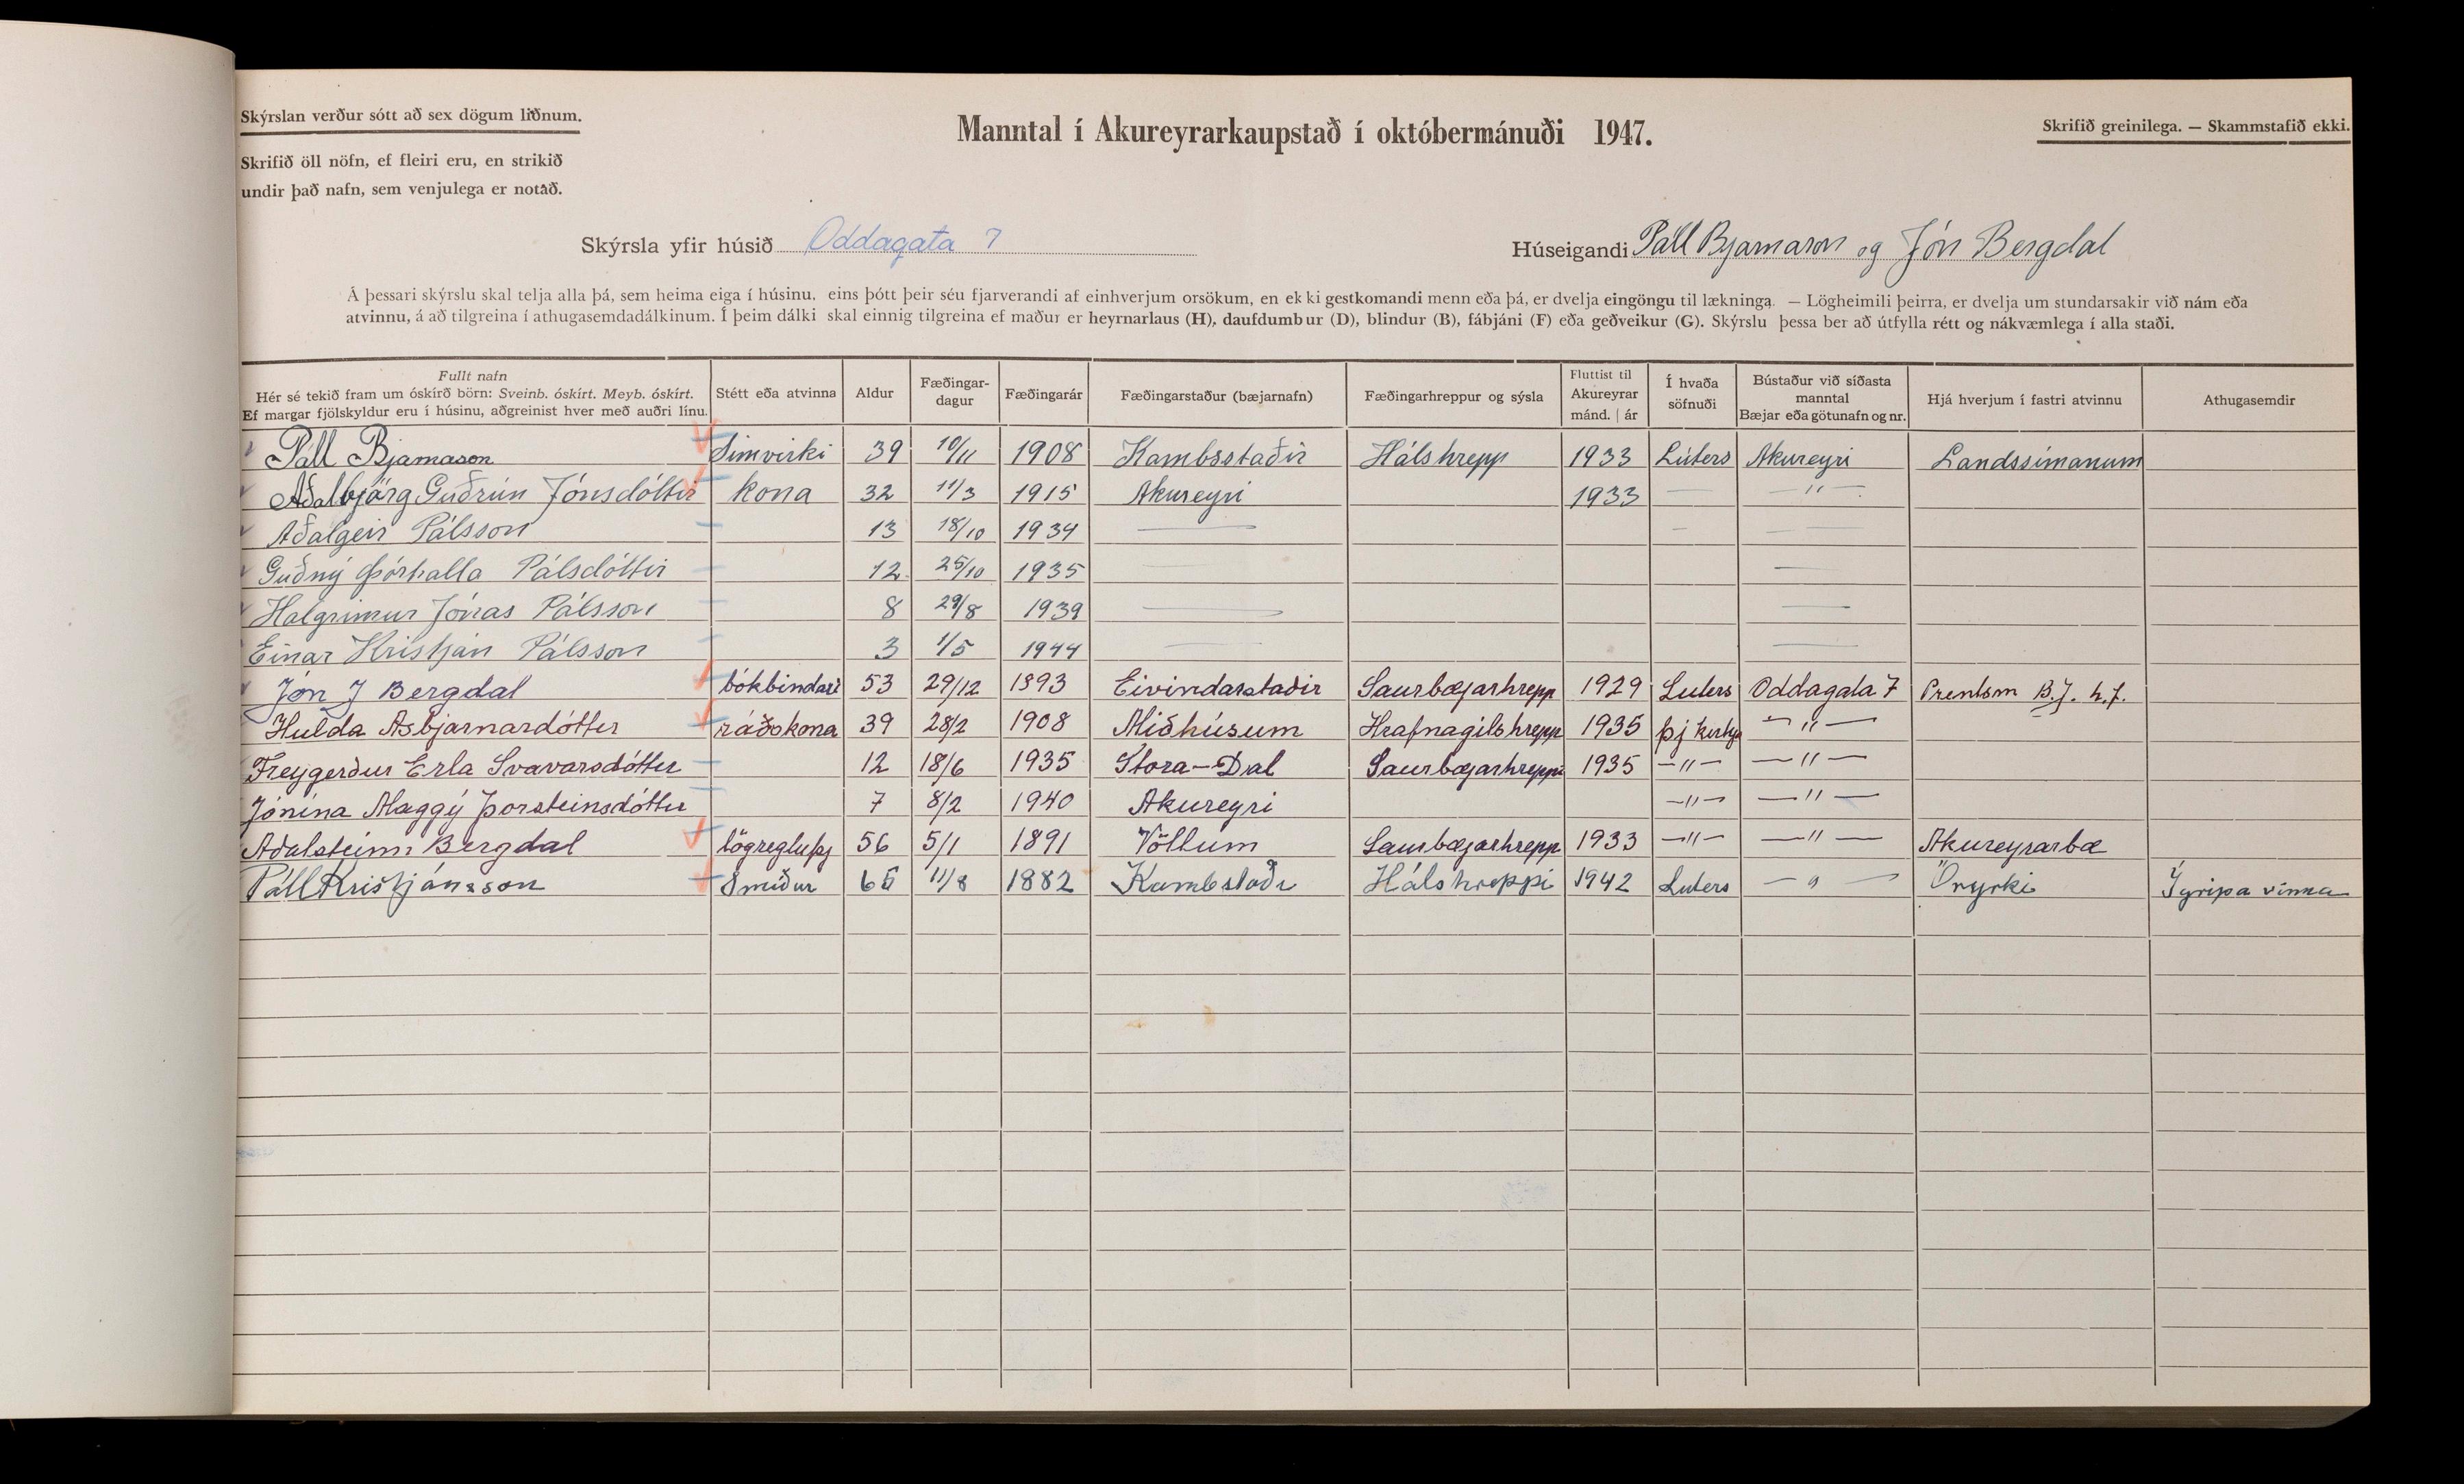 Skýrslan verður sótt að sex dögum liðnum.
Skrifið öll nöfn, ef fleiri eru, en strikið
undir það nafn, sem venjulega er notað.
Manntal í Akureyrarkaupstað í októbermánuði 1947.
Skrifið greinilega. — Skammstafið ekki.
Skýrsla yfir húsið Oddagata 7
Húseigandi Páll Bjarnason og Jón Bergdal
Á þessari skýrslu skal telja alla þá, sem heima eiga í húsinu, eins þótt þeir séu fjarverandi af einhverjum orsökum, en ekki gestkomandi menn eða þá, er dvelja eingöngu til lækninga. — Lögheimili þeirra, er dvelja um stundarsakir við nám eða
atvinnu, á að tilgreina í athugasemdadálkinum. Í þeim dálki skal einnig tilgreina ef maður er heyrnarlaus (H), daufdumbur (D), blindur (B), fábjáni (F) eða geðveikur (G). Skýrslu þessa ber að útfylla rétt og nákvæmlega í alla staði.
Fullt nafn
Hér sé tekið fram um óskírð börn: Sveinb. óskírt. Meyb. óskírt.
Ef margar fjölskyldur eru í húsinu, aðgreinist hver með auðri línu.
Stétt eða atvinna
Aldur
Fæðingar-
dagur
Fæðingarár
Fæðingarstaður (bæjarnafn)
Fæðingarhreppur og sýsla
Fluttist til
Akureyrar
mánd. | ár
Í hvaða
söfnuði
Bústaður við síðasta
manntal
Bæjar eða götunafn og nr.
Hjá hverjum í fastri atvinnu
Athugasemdir
Páll Bjarnason Símvirki 39 10/11 1908 Kambsstaðir Hálshrepp 1933 Lúters Akureyri Landssímanum
Aðalbjörg Guðrún Jónsdóttir kona 32 11/3 1915 Akureyri 1933 — — " —
Aðalgeir Pálsson 13 18/10 1934 — — —
Guðný Þórhalla Pálsdóttir 12 25/10 1935 —
Halgrimur Jónas Pálsson 8 29/8 1939 — —
Einar Kristján Pálsson 3 1/5 1944 — —
Jón J Bergdal bókbindari 53 29/12 1893 Eivindarstaðir Saurbæjarhrepp 1929 Luters Oddagata 7 Prentsm B.J. h.f.
Hulda Asbjarnardóttir ráðskona 39 28/2 1908 Miðhúsum Hrafnagilshrepp 1935 þj kirkja — " —
Freygerður Erla Svavarsdóttir 12 18/6 1935 Stora-Dal Saurbæjarhreppi 1935 — " — — " —
Jónína Maggý Þorsteinsdóttir 7 8/2 1940 Akureyri — " — — " —
Aðalsteinn Bergdal lögregluþj 56 5/1 1891 Völlum Saurbæjarhrepp 1933 — " — — " — Akureyrarbæ
Páll Kristjánsson Smiður 65 11/8 1882 Kambstaðr Hálshreppi 1942 Luters — " — Öryrki Ýgripa vinna